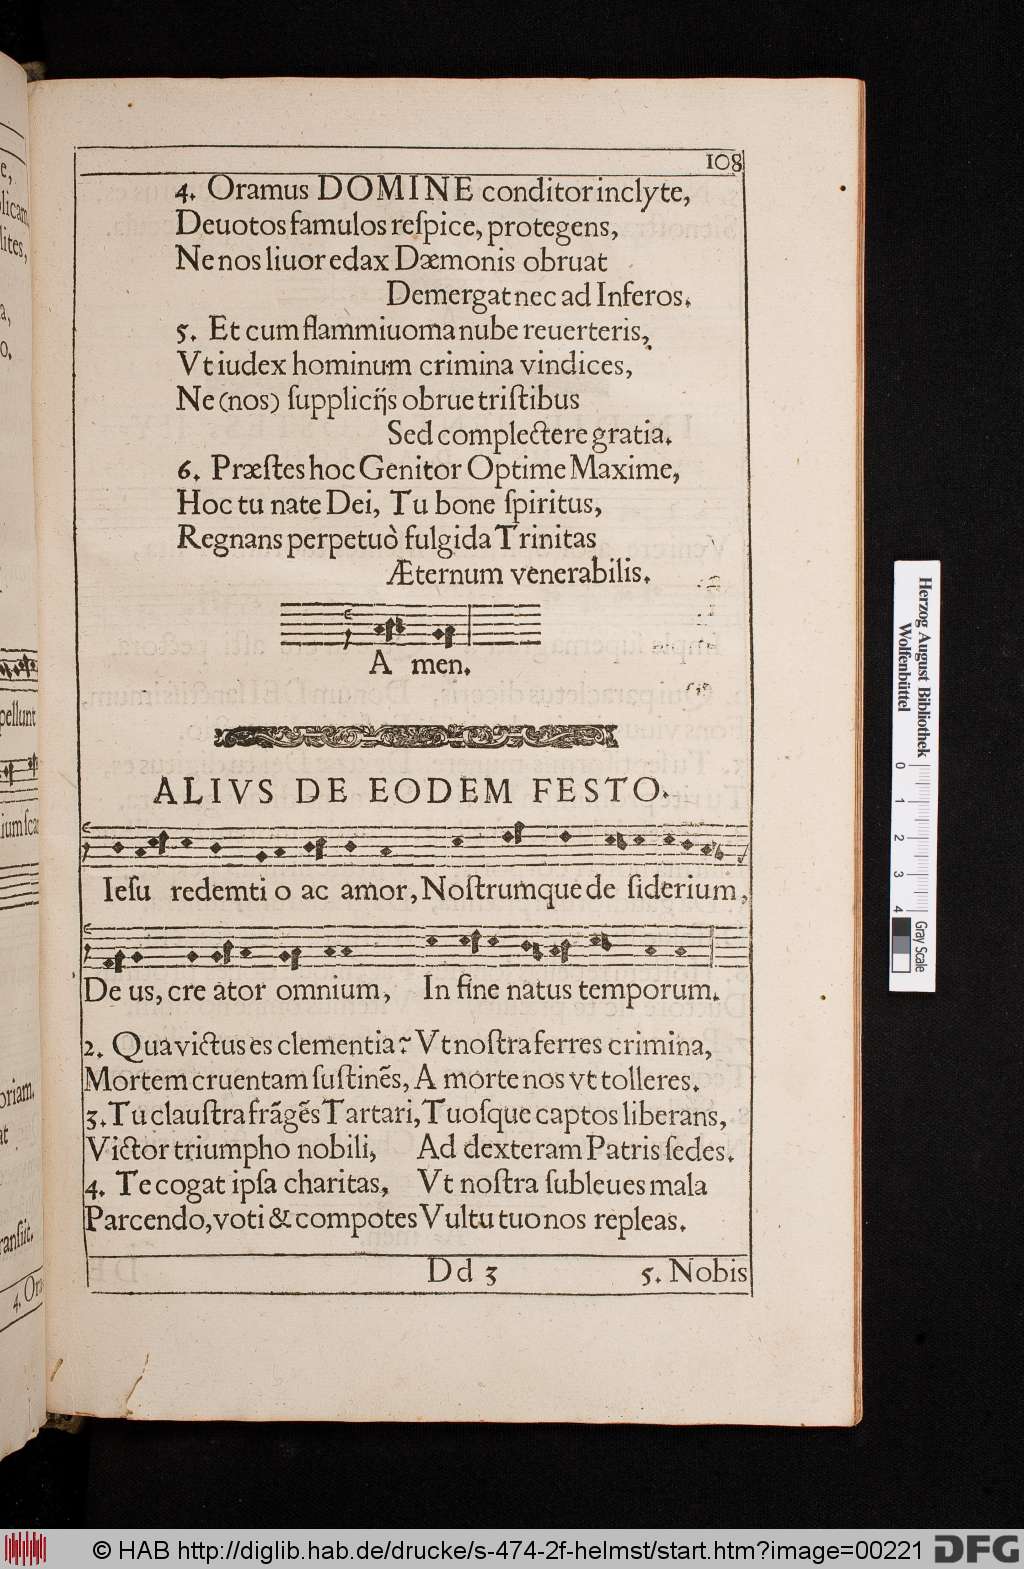 108
4. Oramus DOMINE conditor inclyte,
Deuotos famulos reſpice, protegens,
Ne nos liuor edax Dæmonis obruat
Demergat nec ad Inferos.
5. Et cum flammiuoma nube reuerteris,
Vt iudex hominum crimina vindices,
Ne (nos) ſupplicijs obrue triſtibus
Sed complectere gratia.
6. Præſtes hoc Genitor Optime Maxime,
Hoc tu nate Dei, Tu bone ſpiritus,
Regnans perpetuò fulgida Trinitas
Æternum venerabilis.
A men.
ALIVS DE EODEM FESTO.
Ieſu redemti o ac amor, Noſtrumque de ſiderium,
De us, cre ator omnium, In fine natus temporum.
2. Qua victus es clementia? Vt noſtra ferres crimina,
Mortem cruentam ſuſtinẽs, A morte nos vt tolleres.
3. Tu clauſtra frãgẽs Tartari, Tuoſque captos liberans,
Victor triumpho nobili, Ad dexteram Patris ſedes.
4. Te cogat ipſa charitas, Vt noſtra ſubleues mala
Parcendo, voti & compotes Vultu tuo nos repleas.
Dd 3 5. Nobis
pellunt
oriam.
ranſiit.
4. Or
Herzog August Bibliothek
Wolfenbüttel
0 1 2 3 4
Gray Scale
© HAB http://diglib.hab.de/drucke/s-474-2f-helmst/start.htm?image=00221
DFG